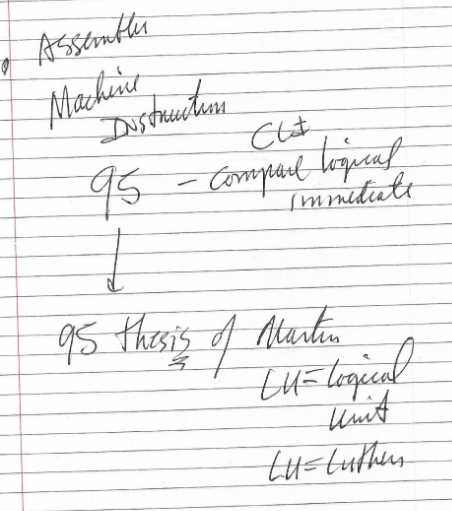 Assembler
Machine
Instruction
CLI
95 - Compare logical
immediate
95 thesis of Martin
LU = Logical
Unit
LU = Luthers